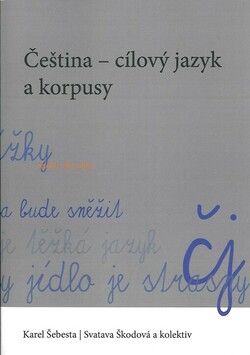 Čeština – cílový jazyk
a korpusy
žky
a bude sněžit
je těžká jazyk
čj
y jídlo je strašny
Karel Šebesta | Svatava Škodová a kolektiv